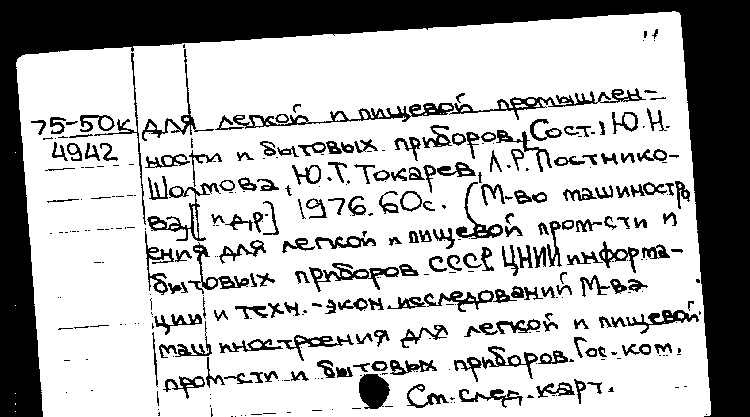 75-50к для легкой и пищевой промышлен-
4942 ности и бытовых приборов. Сост.: Ю.Н.
Шолмова, Ю.Т. Токарев, Л.Р. Постнико-
ва, [и др.] 1976. 60с. (М-во машиностро
ения для легкой и пищевой пром-сти и
бытовых приборов СССР, ЦНИИ информа-
ции и техн.-экон. исследований М-ва
машиностроения для легкой и пищевой
пром-сти и бытовых приборов. Гос. ком.
См. след. карт.